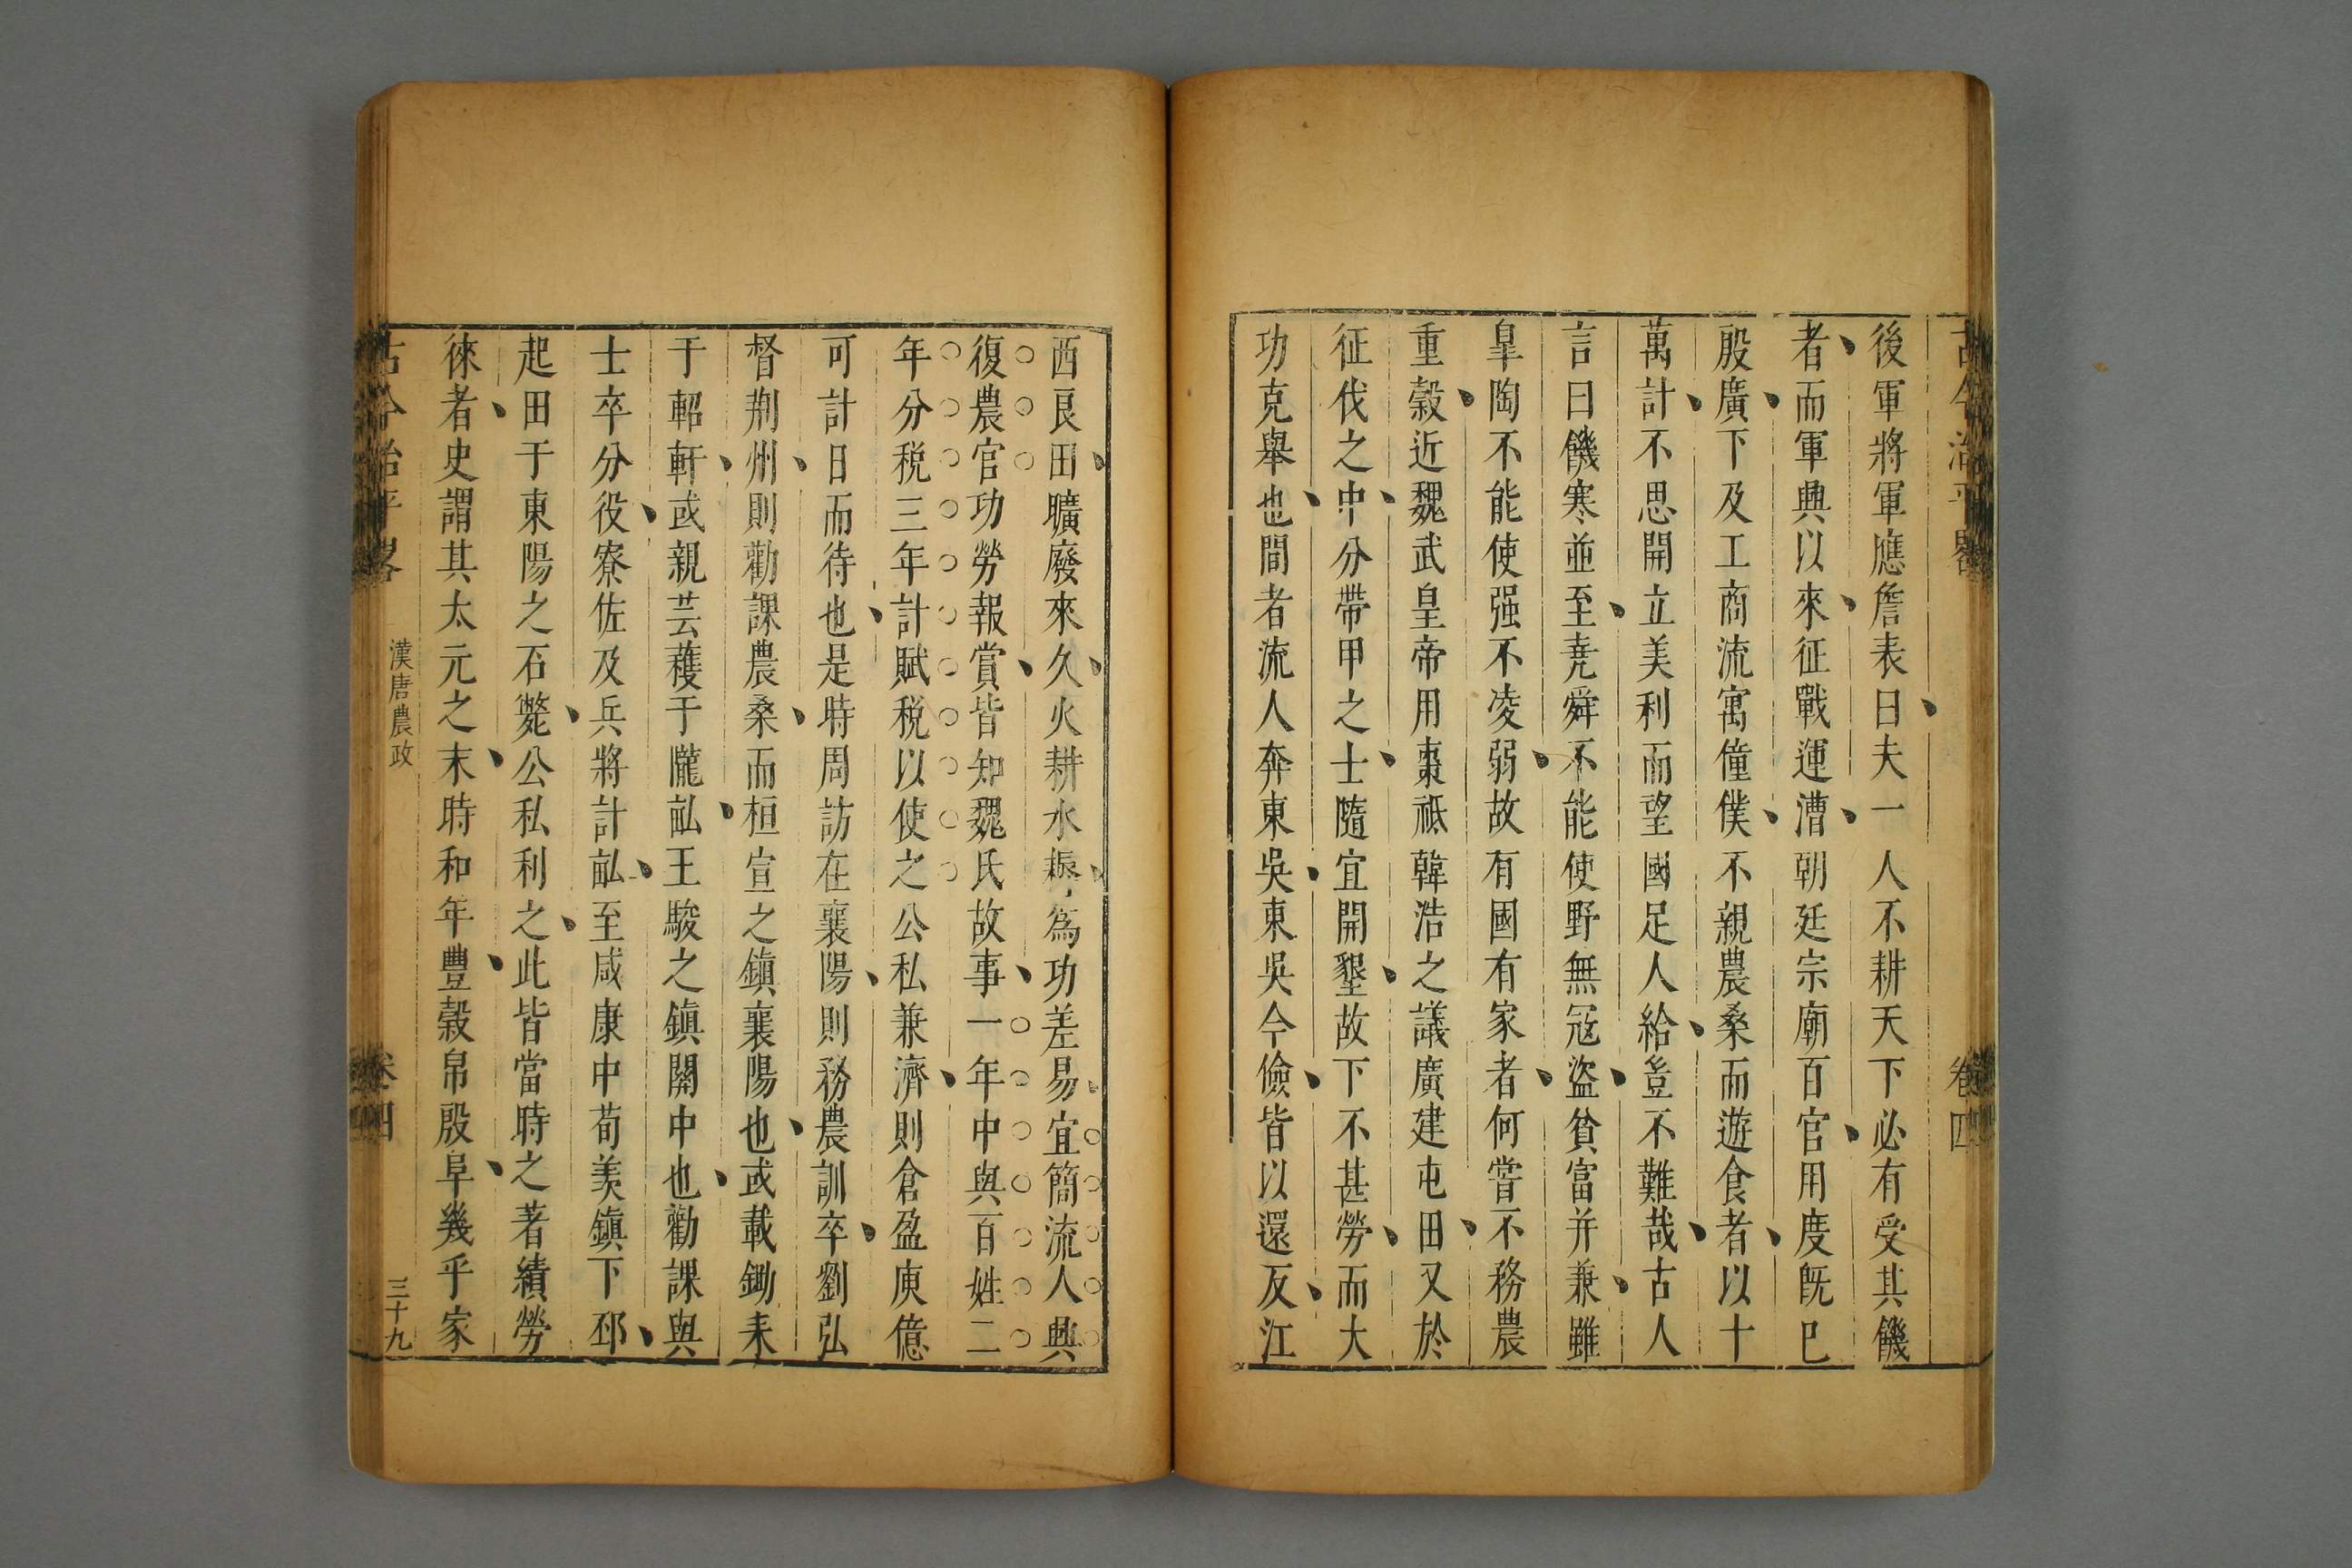 古今治平畧
卷四
後軍將軍應詹表曰夫一人不耕天下必有受其饑
者而軍興以來征戰運漕朝廷宗廟百官用度既已
殷廣下及工商流寓僮僕不親農桑而遊食者以十
萬計不思開立美利而望國足人給豈不難哉古人
言曰饑寒並至堯舜不能使野無冦盜貧富并兼雖
臯陶不能使强不凌弱故有國有家者何嘗不務農
重穀近魏武皇帝用棗祗韓浩之議廣建屯田又於
征伐之中分帶甲之士隨宜開墾故下不甚勞而大
功克舉也間者流人奔東吳東吳今儉皆以還反江
西良田曠廢來久火耕水耨為功差易宜簡流人興
復農官功勞報賞皆如魏氏故事一年中與百姓二
年分稅三年計賦稅以使之公私兼濟則倉盈庾億
可計日而待也是時周訪在襄陽則務農訓卒劉弘
督荆州則勸課農桑而桓宣之鎮襄陽也或載鋤耒
于軺軒或親芸穫于隴畝王駿之鎮關中也勸課與
士卒分役寮佐及兵將計畝至咸康中荀羨鎮下邳
起田于東陽之石鼈公私利之此皆當時之著績勞
徠者史謂其太元之末時和年豐穀帛殷阜幾乎家
古今治平畧
漢唐農政
卷四
三十九